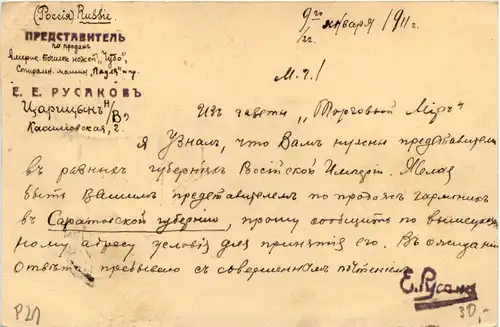 (Россія) Russie
ПРЕДСТАВИТЕЛЬ
по продажѣ
Стиральн. машин
Е. Е. РУСАКОВЪ
Царицынъ н/В
Касимовская, 2.
9/22 января 1911 г.
М. г.!
Изъ газеты „Торговый Міръ"
я узналъ, что Вамъ нужны представители
въ разныхъ губерніяхъ Россійской Имперіи. Желая
быть Вашимъ представителемъ по продажѣ гармоникъ
въ Саратовской губерніи, прошу сообщить по вышеуказан-
ному адресу условія для принятія его. Въ ожиданіи
Отвѣта пребываю съ совершеннымъ почтеніемъ
Е. Русаковъ
P21
30,-